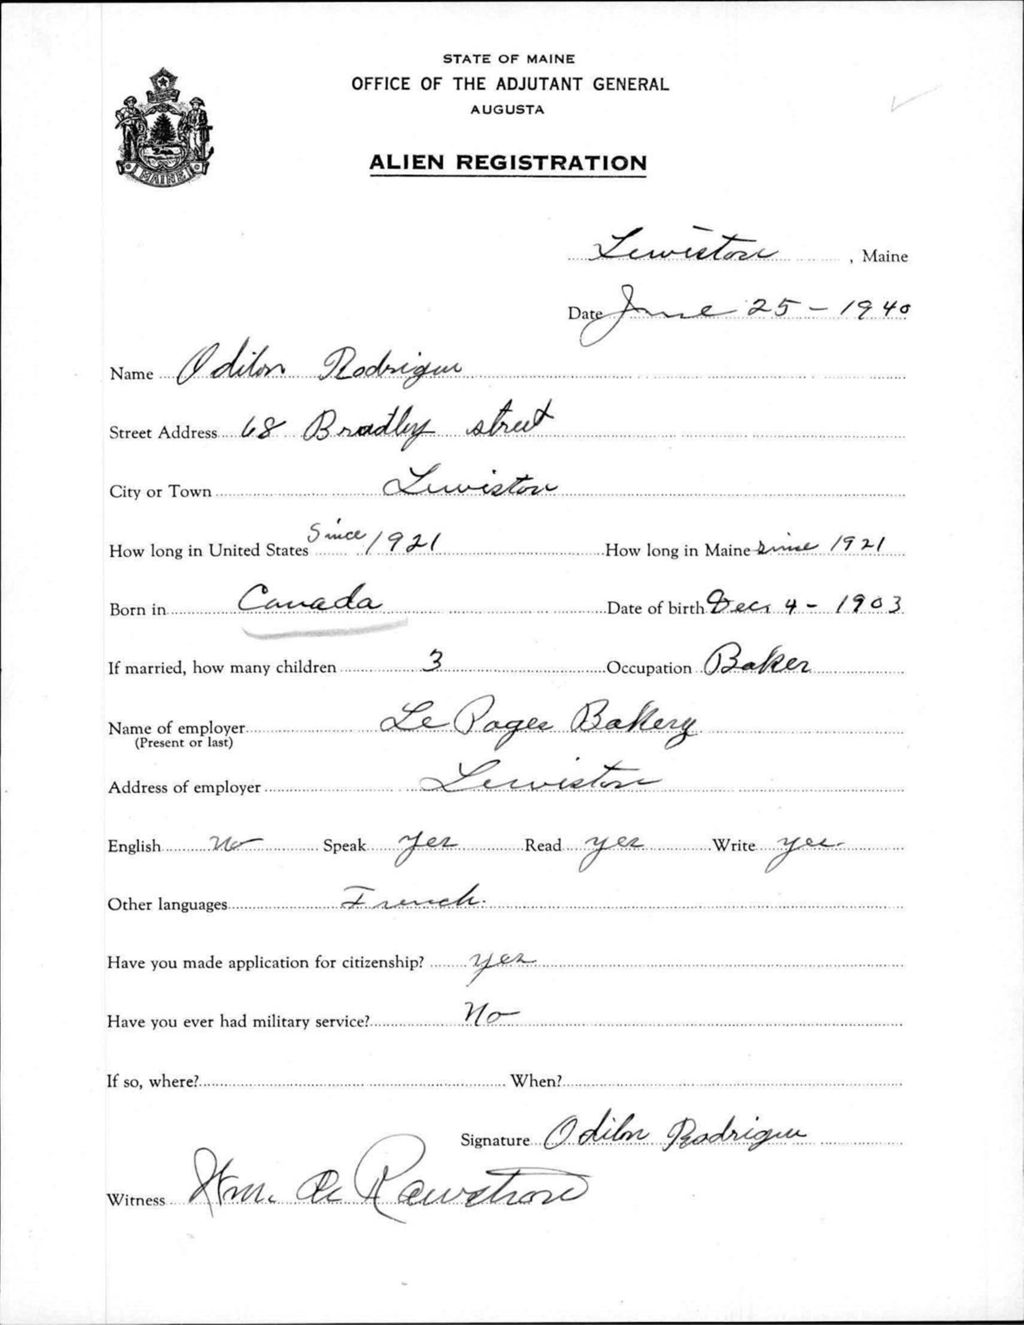 STATE OF MAINE
OFFICE OF THE ADJUTANT GENERAL
AUGUSTA
ALIEN REGISTRATION
MAINE
Lewiston, Maine
Date June 25 - 1940
Name Odilon Rodrigue
Street Address 68 Bradley street
City or Town Lewiston
How long in United States Since 1921 How long in Maine Since 1921
Born in Canada Date of birth Dec. 4 - 1903
If married, how many children 3 Occupation Baker
Name of employer Le Pages Bakery
(Present or last)
Address of employer Lewiston
English No Speak yes Read yes Write yes.
Other languages French.
Have you made application for citizenship? yes
Have you ever had military service? No
If so, where? When?
Signature Odilon Rodrigue
Witness Wm. Rawstron